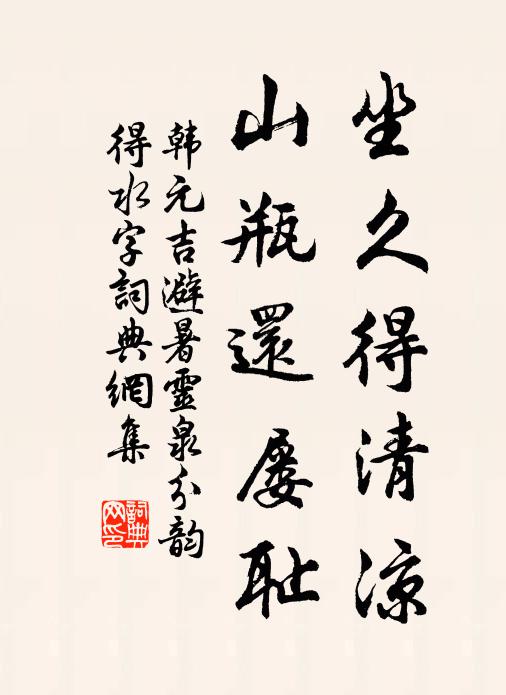 坐久得清涼
山瓶還屢耻
韩元吉避暑靈泉分韵
得水字詞典網集
詞典
网印